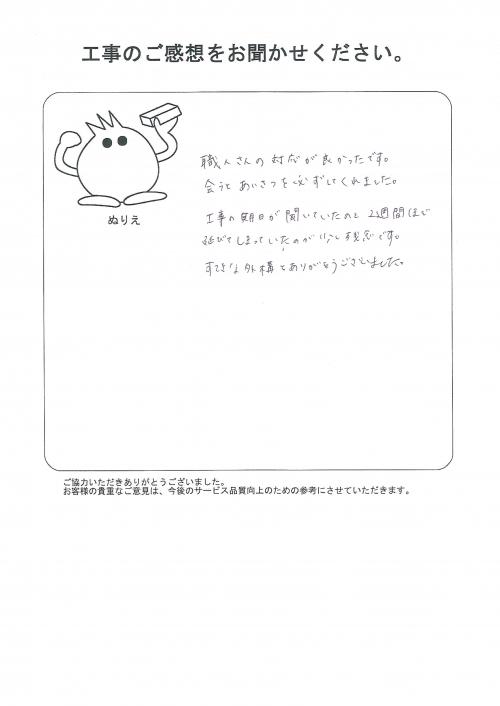 工事のご感想をお聞かせください。
ぬりえ
職人さんの対応が良かったです。
会うとあいさつを必ずしてくれました。
工事の期日が聞いていたのと2週間ほど
延びてしまっていたのが少し残念です。
すてきな外構をありがとうございました。
ご協力いただきありがとうございました。
お客様の貴重なご意見は、今後のサービス品質向上のための参考にさせていただきます。